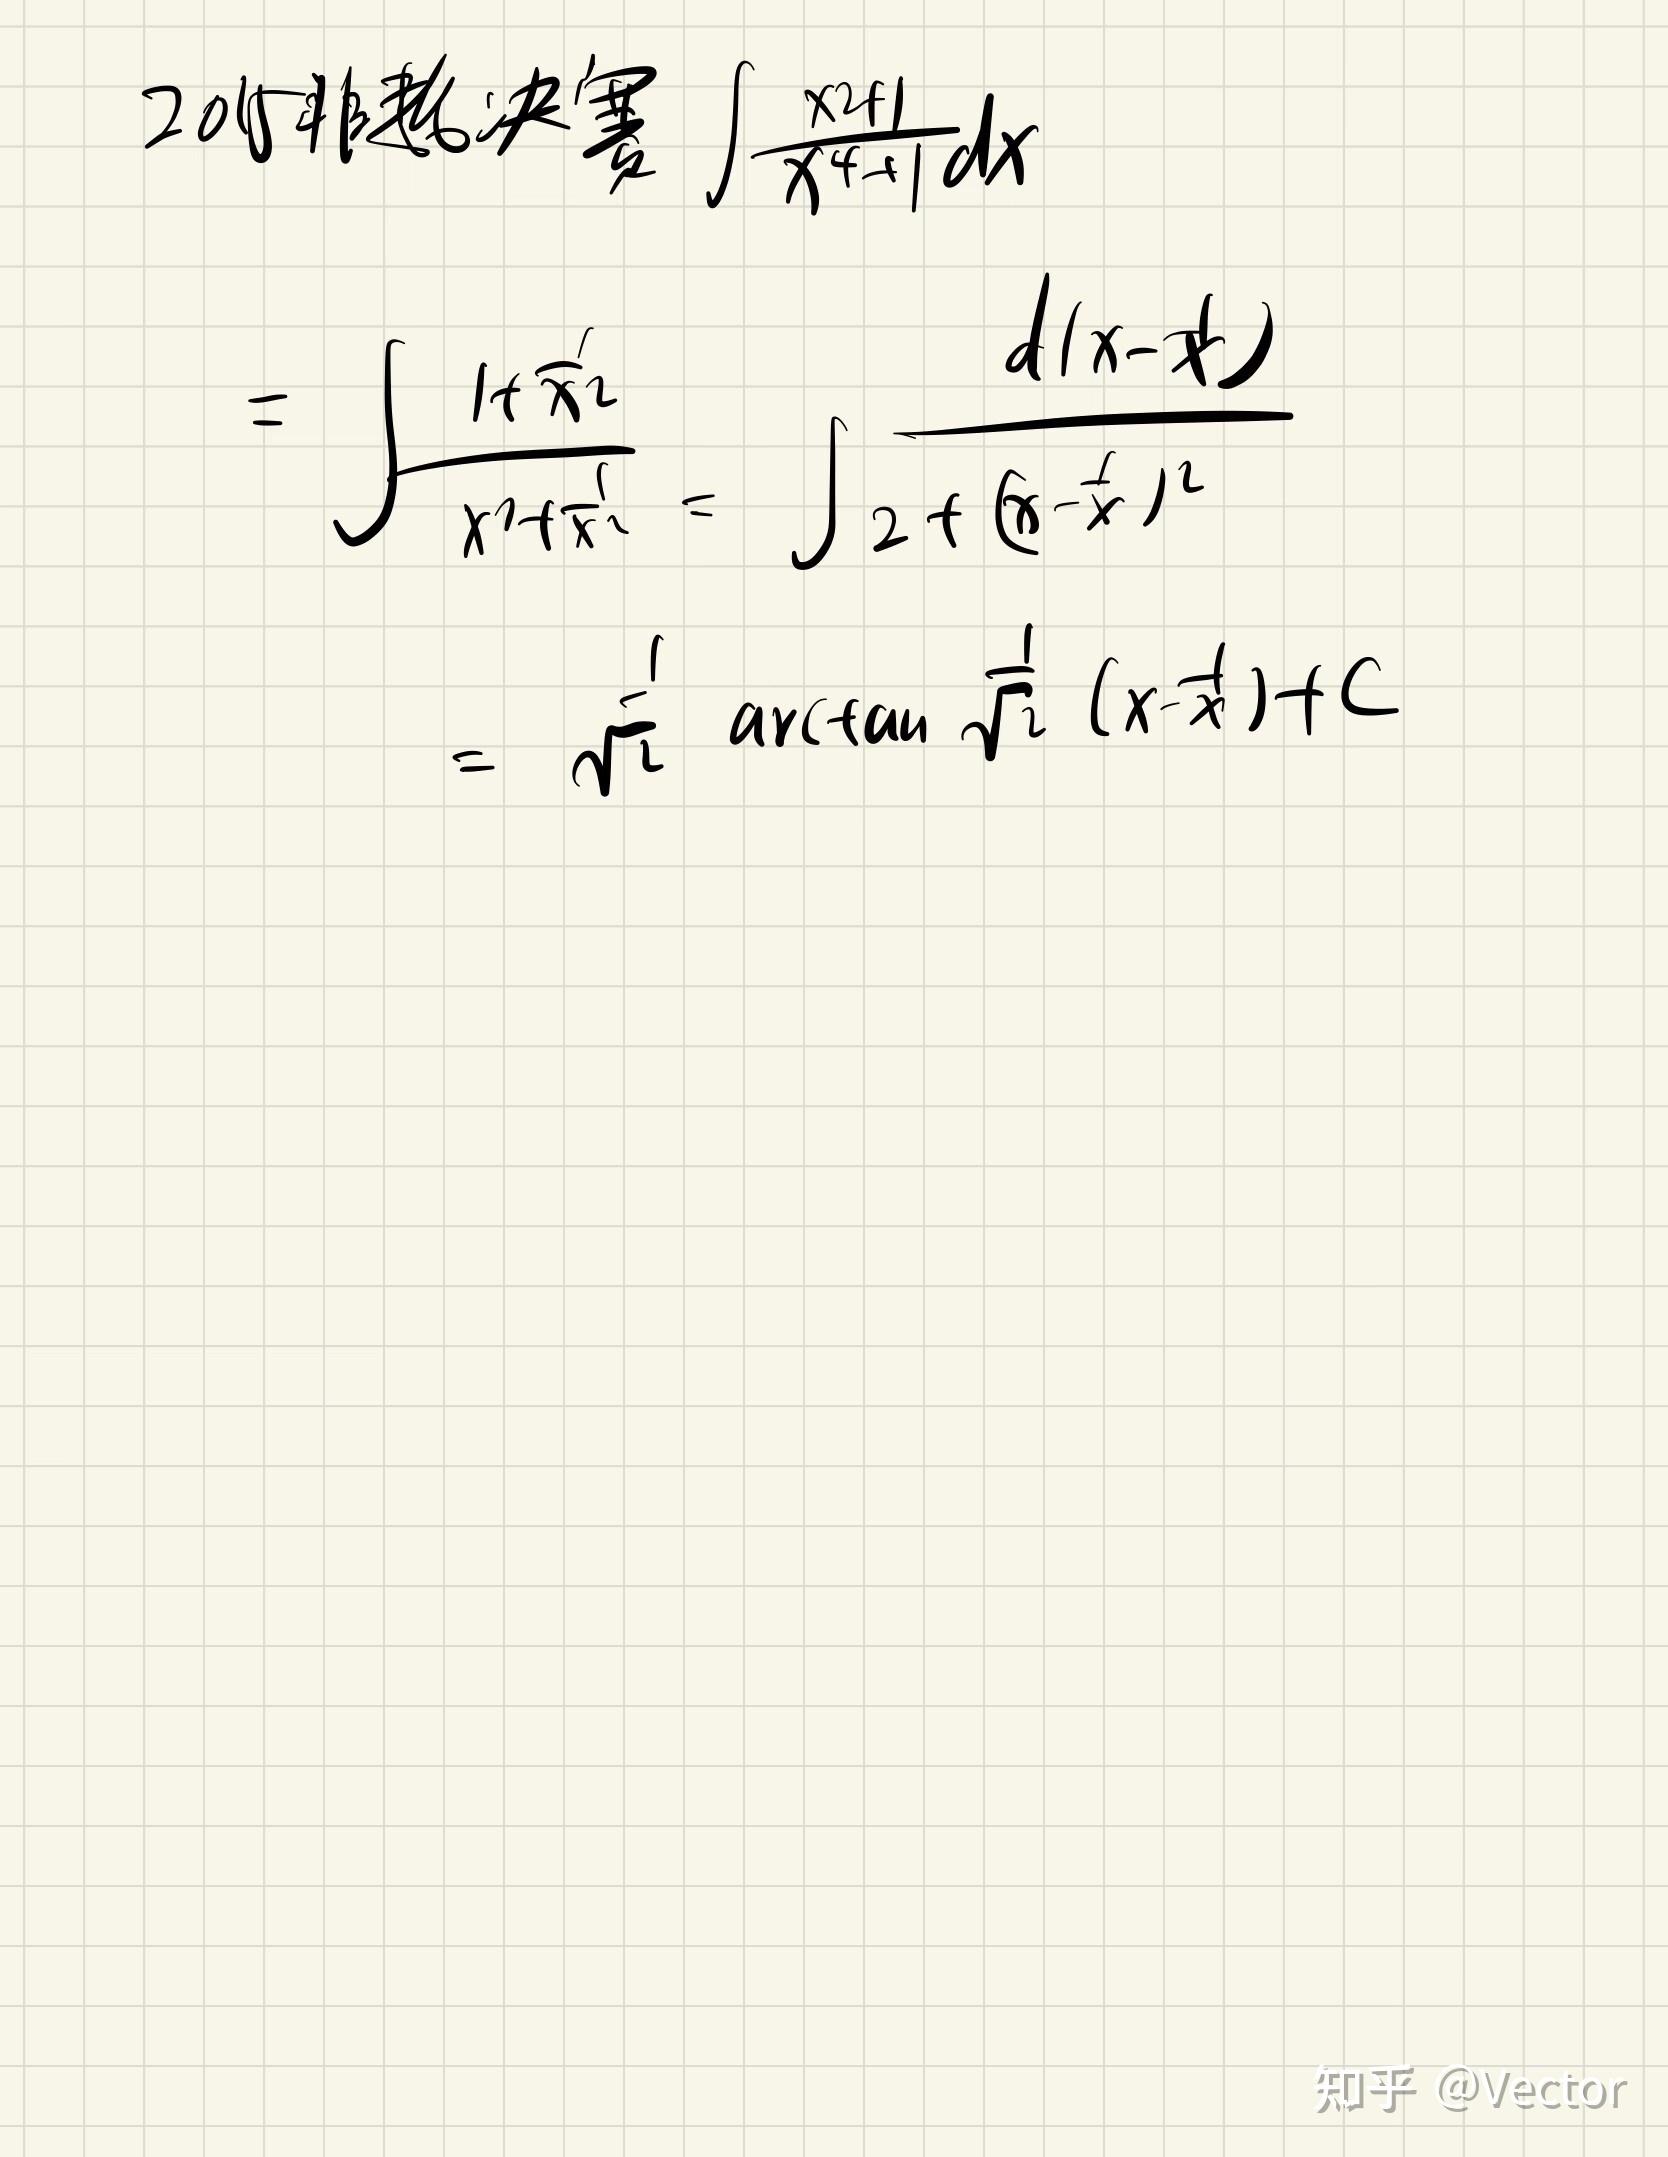 2015非数决赛 ∫ (x²+1)/(x⁴+1) dx
= ∫ (1+1/x²)/(x²+1/x²) = ∫ d(x-1/x)/(2+(x-1/x)²)
= 1/√2 arctan 1/√2 (x-1/x)+C
知乎 @Vector